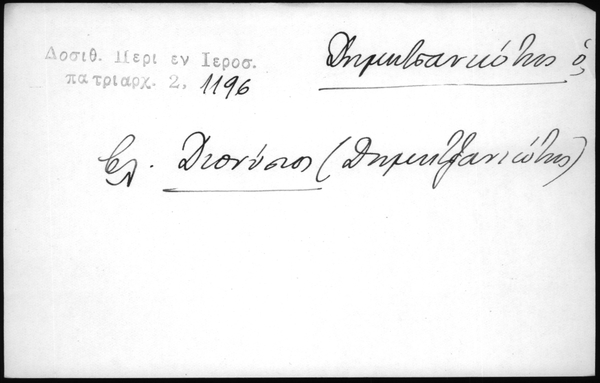 Δοσιθ. Περι εν Ιεροσ.
πατριαρχ. 2, 1196
Δημητσανιώτης ὁ,
βλ. Διονύσιος (Δημητζανιώτης)